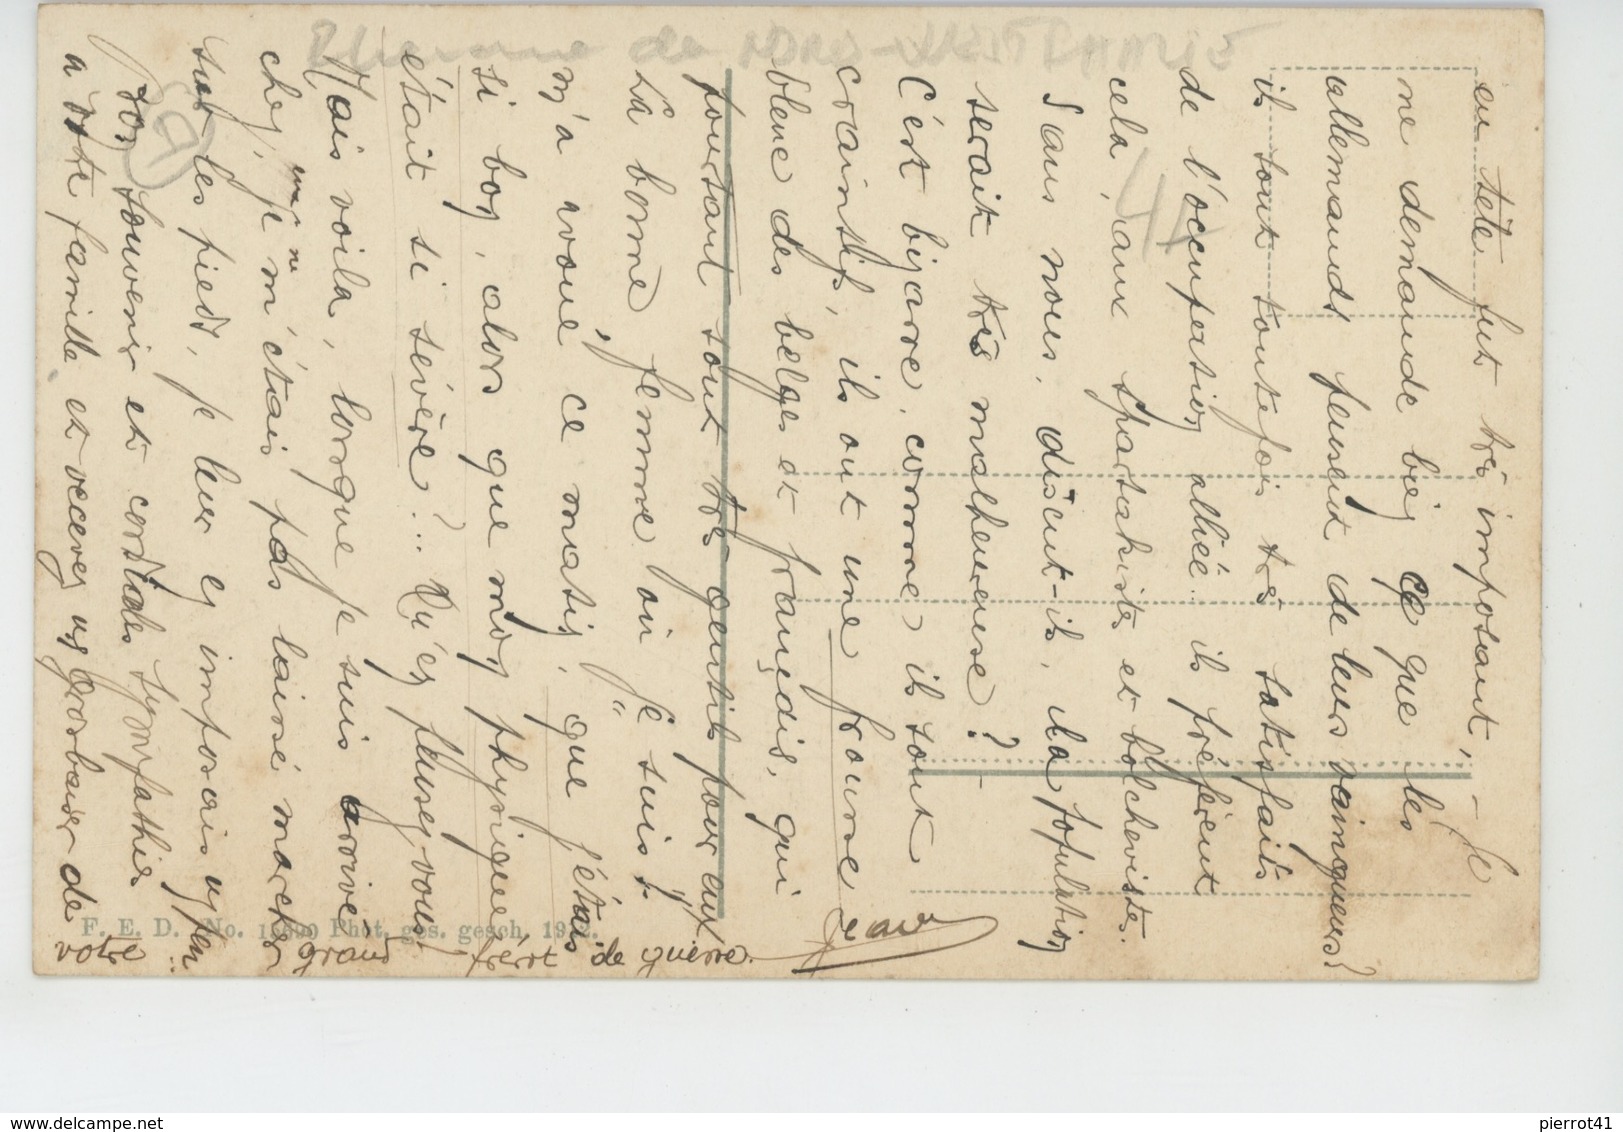 en tête fut très imposant, – Je
ne demande bien ce que les
allemands pensent de leurs vainqueurs?
ils sont toutefois très satisfaits
de l'occupation alliée.. ils préfèrent
cela, aux spartakistes et bolchevistes.
Sans nous, disent-ils, la population
serait très malheureuse?
C'est bizarre, comme ils sont
craintifs, ils ont une frousse
bleue des belges et français, qui
pourtant sont très gentils pour eux
La bonne femme où je suis
m'a avoué, ce matin, que j'étais
si bon, alors que mon physique
était si sévère?.. Qu'en pensez vous!
Mais voila, lorsque je suis arrivé
chez eux, je ne m'étais pas laissé marcher
sur les pieds, je leur en imposais un peu..
Bon souvenir et cordiales sympathies
a votre famille et recevez un gros baiser de
votre grand frère de guerre.
Jean
F. E. D. No. Phot. ges. gesch. 1912.
44
pierrot41